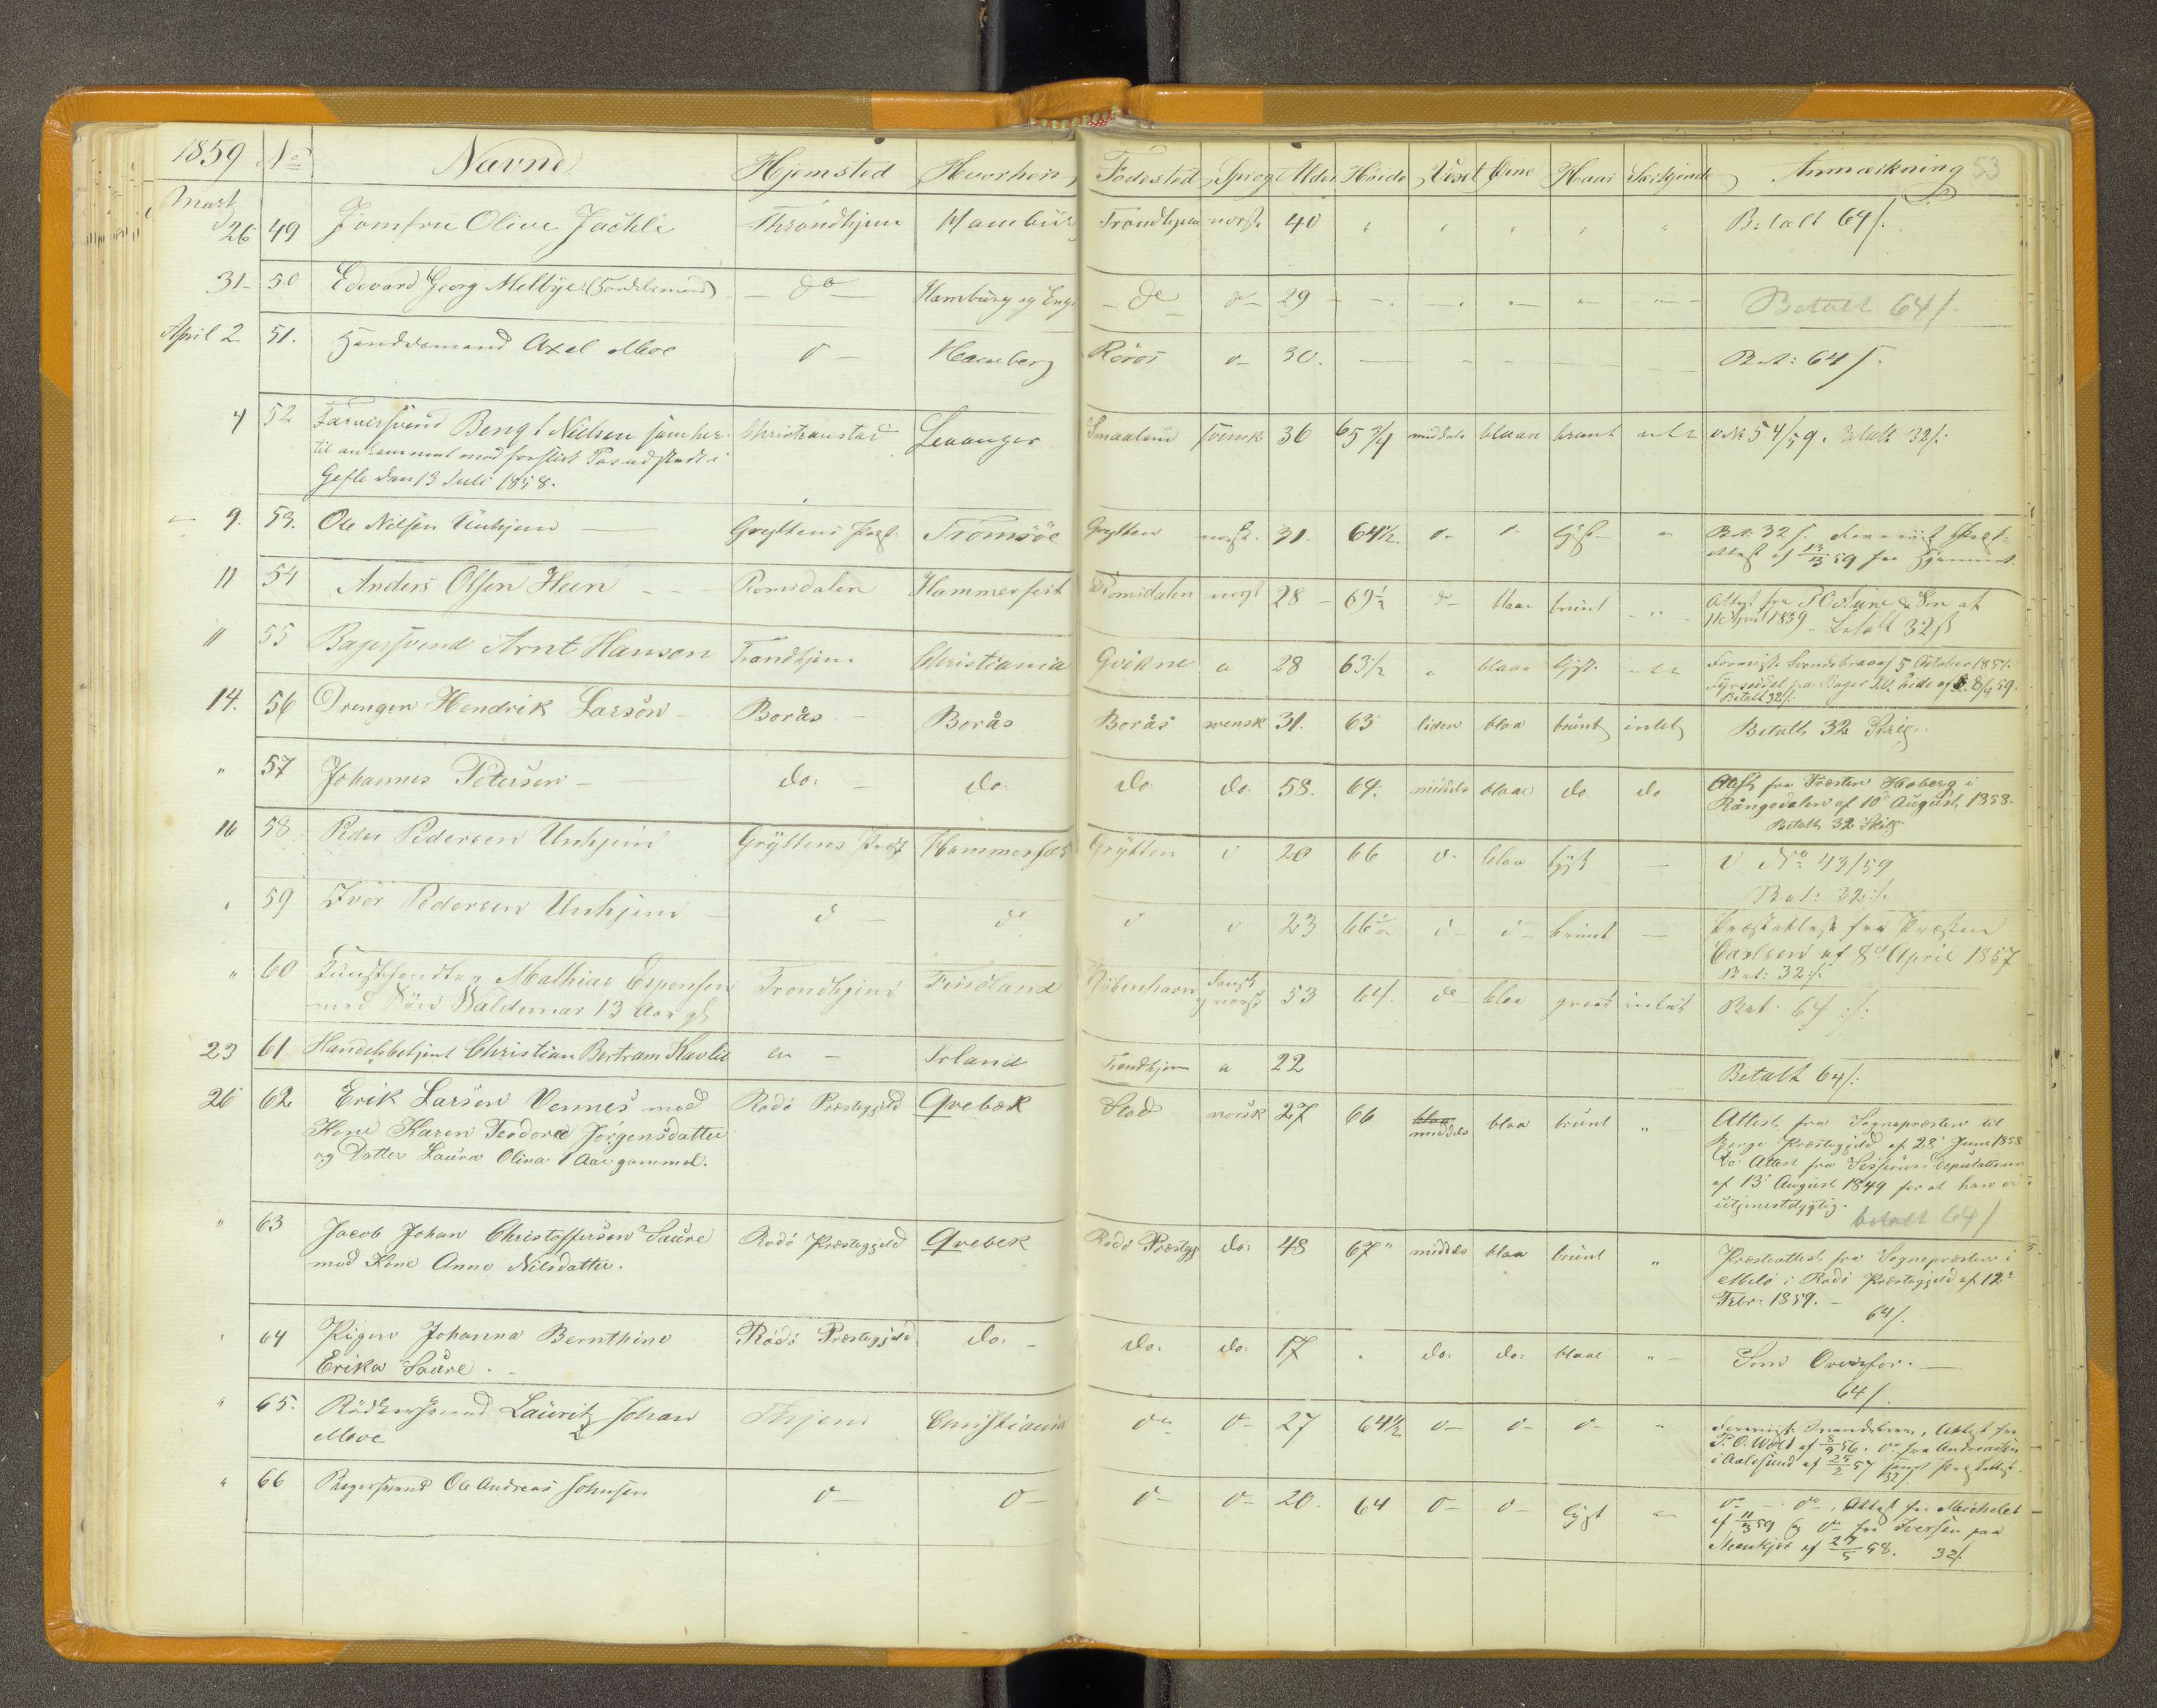 1859 No Navne Hjemsted Hvorhen Fødested Sprog Alder Høide Vext Øine Haar Særkjende Anmærkning 53
Marts
26 49 Jomfru Olive Jachli Throndhjem Hamburg Trondhjem norsk 40 " " " " " Betalt 64 /.
31 50 Edevard Georg Melbye (Handelsmand) do Hamburg og Eng. do do 29 Betalt 64 /.
April 2 51. Handelsmand Axel Moe d Hamborg Röros d 30. Bet: 64 /.
4 52 Farversvend Bengt Nielsen som her Christianstad Levanger Smaaland svensk 36 65 3/4 middels blaae brunt intet v. No 54/59. Betalt 32 /.
til ankommet med forslidt Pas udstædt i
Gefle den 13 Juli 1858.
9. 53. Ole Nilsen Unhjem Gryttens Prgj. Tromsöe Grytten norsk 31. 64 1/2. d d lyst " Bet: 32 /.
Attest af 13/3 59 fra Hjemmet
11 54 Anders Olsen Heen Romsdalen Hammerfest Romsdalen norsk 28 69 1/2 d blaae brunt " Attest fra & Søn af
11 April 1859 Betalt 32 ß
11 55 Bagersvend Arnt Hanson Trondhjem Christiania Qvikne " 28 63 1/2 " blaae lyst intet Foreviist Svendebrev af 5 October 1857.
fra Bager af 8/4 59.
Betalt 32 /.
14. 56 Drengen Hendrik Larson Borås Borås Borås svensk 31. 63 liden blaa brunt intet Betalt 32
" 57 Johannes Petersen do. do. do do. 58. 64. middels blaae do do Attest fra Præsten Hoberg i
Rångedalen af 10de August 1858.
Betalt 32 Skilg.
16 58. Peder Pedersen Unhjem Gryttens Prgj Hammerfest Grytten d 20 66 d. blaa lyst v No 43/59
Bet: 32 /.
" 59 Iver Pedersen Unhjem d d d d 23 66 1/2 d d brunt Præsteattest fra Præsten
Carlsen af 8de April 1857
Bet: 32 /.
" 60 Kunsthandler Mathias Espensen Trondhjem Findland Kjöbenhavn dansk 53 64. do blaa graat intet Bet. 64 /.
med Sön Waldemar 13 Aar gl. og norsk
23 61 Handelsbetjent Christian Bertram Kavlie " Irland Trondhjem " 22 Betalt 64 /.
26 62 Erik Larsen Vennes med Rødø Præstegjeld Qvebæk Stod norsk 27 66 blaa middels blaa brunt " Attest fra Sognepræsten til
Kone Karen Teodora Jørgensdatter Præstegjeld af 28 Juni 1858
og Datter Laura Olina 1 Aar gammel. do Attest fra Sessions Deputationen
af 13 August 1849 for at have
utjenestdygtig.
betalt 64 /
" 63 Jacob Johan Christoffersen Saure Rødø Præstegjeld Qvebek Rødø Præstegj do. 48 67" middels blaa brunt " Præsteattest fra Sognepræsten i
med Kone Anne Nilsdatter. Melø i Rødø Præstegjeld af 12te
Febr: 1859. 64 /.
" 64 Pigen Johanna Bernthine Rødø Præstegjeld do. do. do. 17 " do. do. blaae " Som Ovenfor.
Erika Saure. 64 /.
" 65. Rødkersvend Lauritz Johan Thjem Christiania do d 27 64 1/2 d d d " Foreviist Svendebrev, Attest fra
Moe P. O. Wold af 8/9 56. do fra Andreasen
i Aalesund af 25/2 57 samt
32 /.
" 66 Bagersvend Ole Andreas Johnsen d d d d 20. 64 d d lyst " do do, Attest fra Michelet
af 11/3 59 og do fra Iversen paa
Steenkjær af 27/5 58. 32 /.